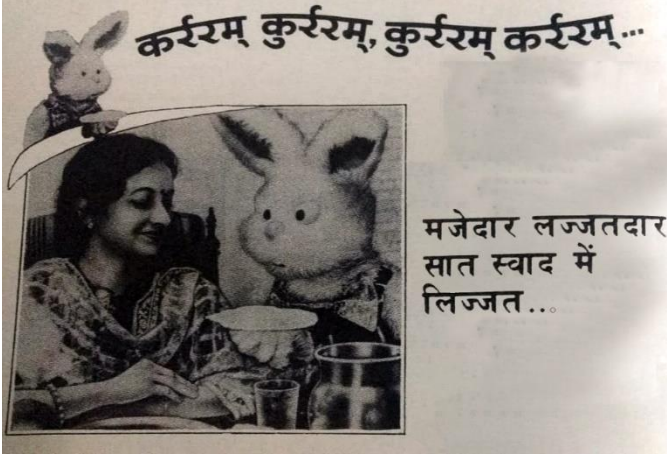 कर्ररम् कुर्ररम्, कुर्ररम् कर्ररम्...
मजेदार लज्जतदार
सात स्वाद में
लिज्जत...